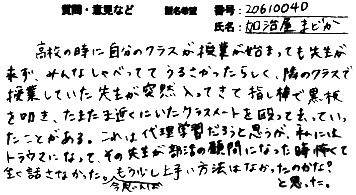 質問・意見など 匿名希望 番号:20610040
氏名:加治屋まどか
高校の時に自分のクラスが授業が始まっても先生が
来ず、みんなしゃべっててうるさかったらしく、隣のクラスで
授業していた先生が突然入ってきて指し棒で黒板
を叩き、たまたま近くにいたクラスメートを殴って去ってい
たことがある。これは代理学習だろうと思うが、私には
トラウマになって、その先生が部活の顧問になった時怖くて
全く話せなかった。もう少し上手い方法はなかったのかな?
今思えば と思った。